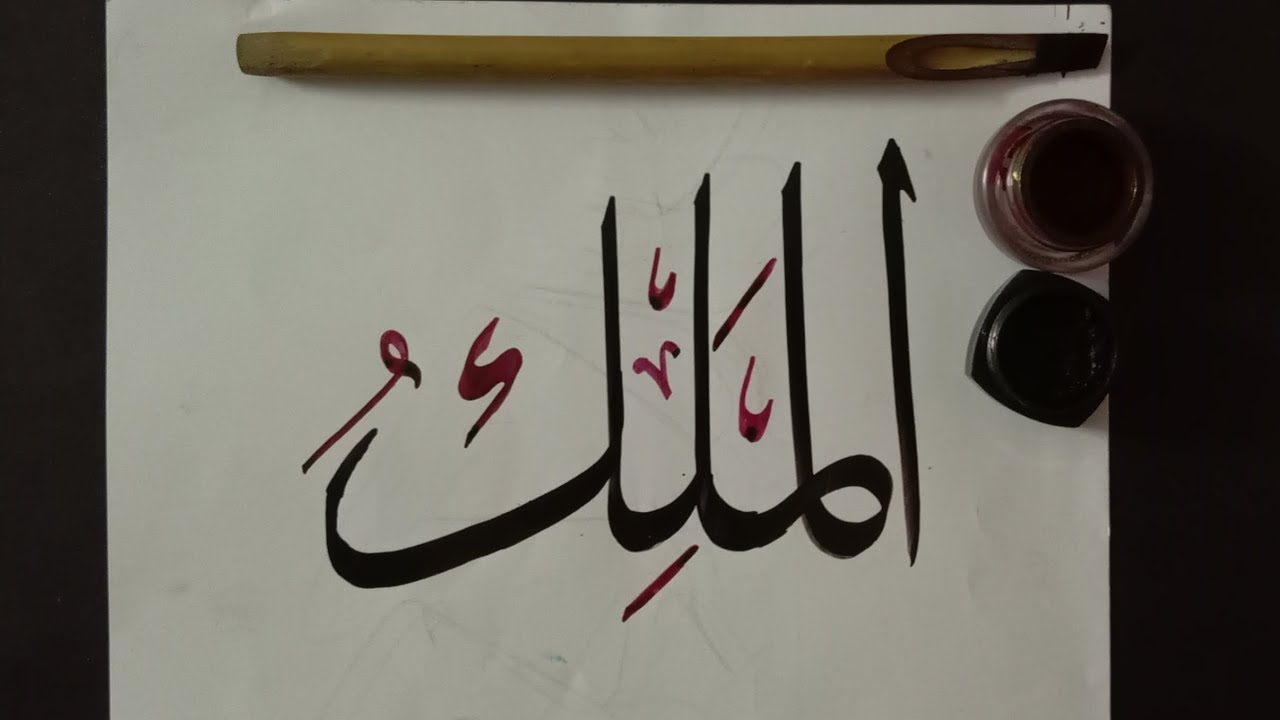 الْمَلِكُ